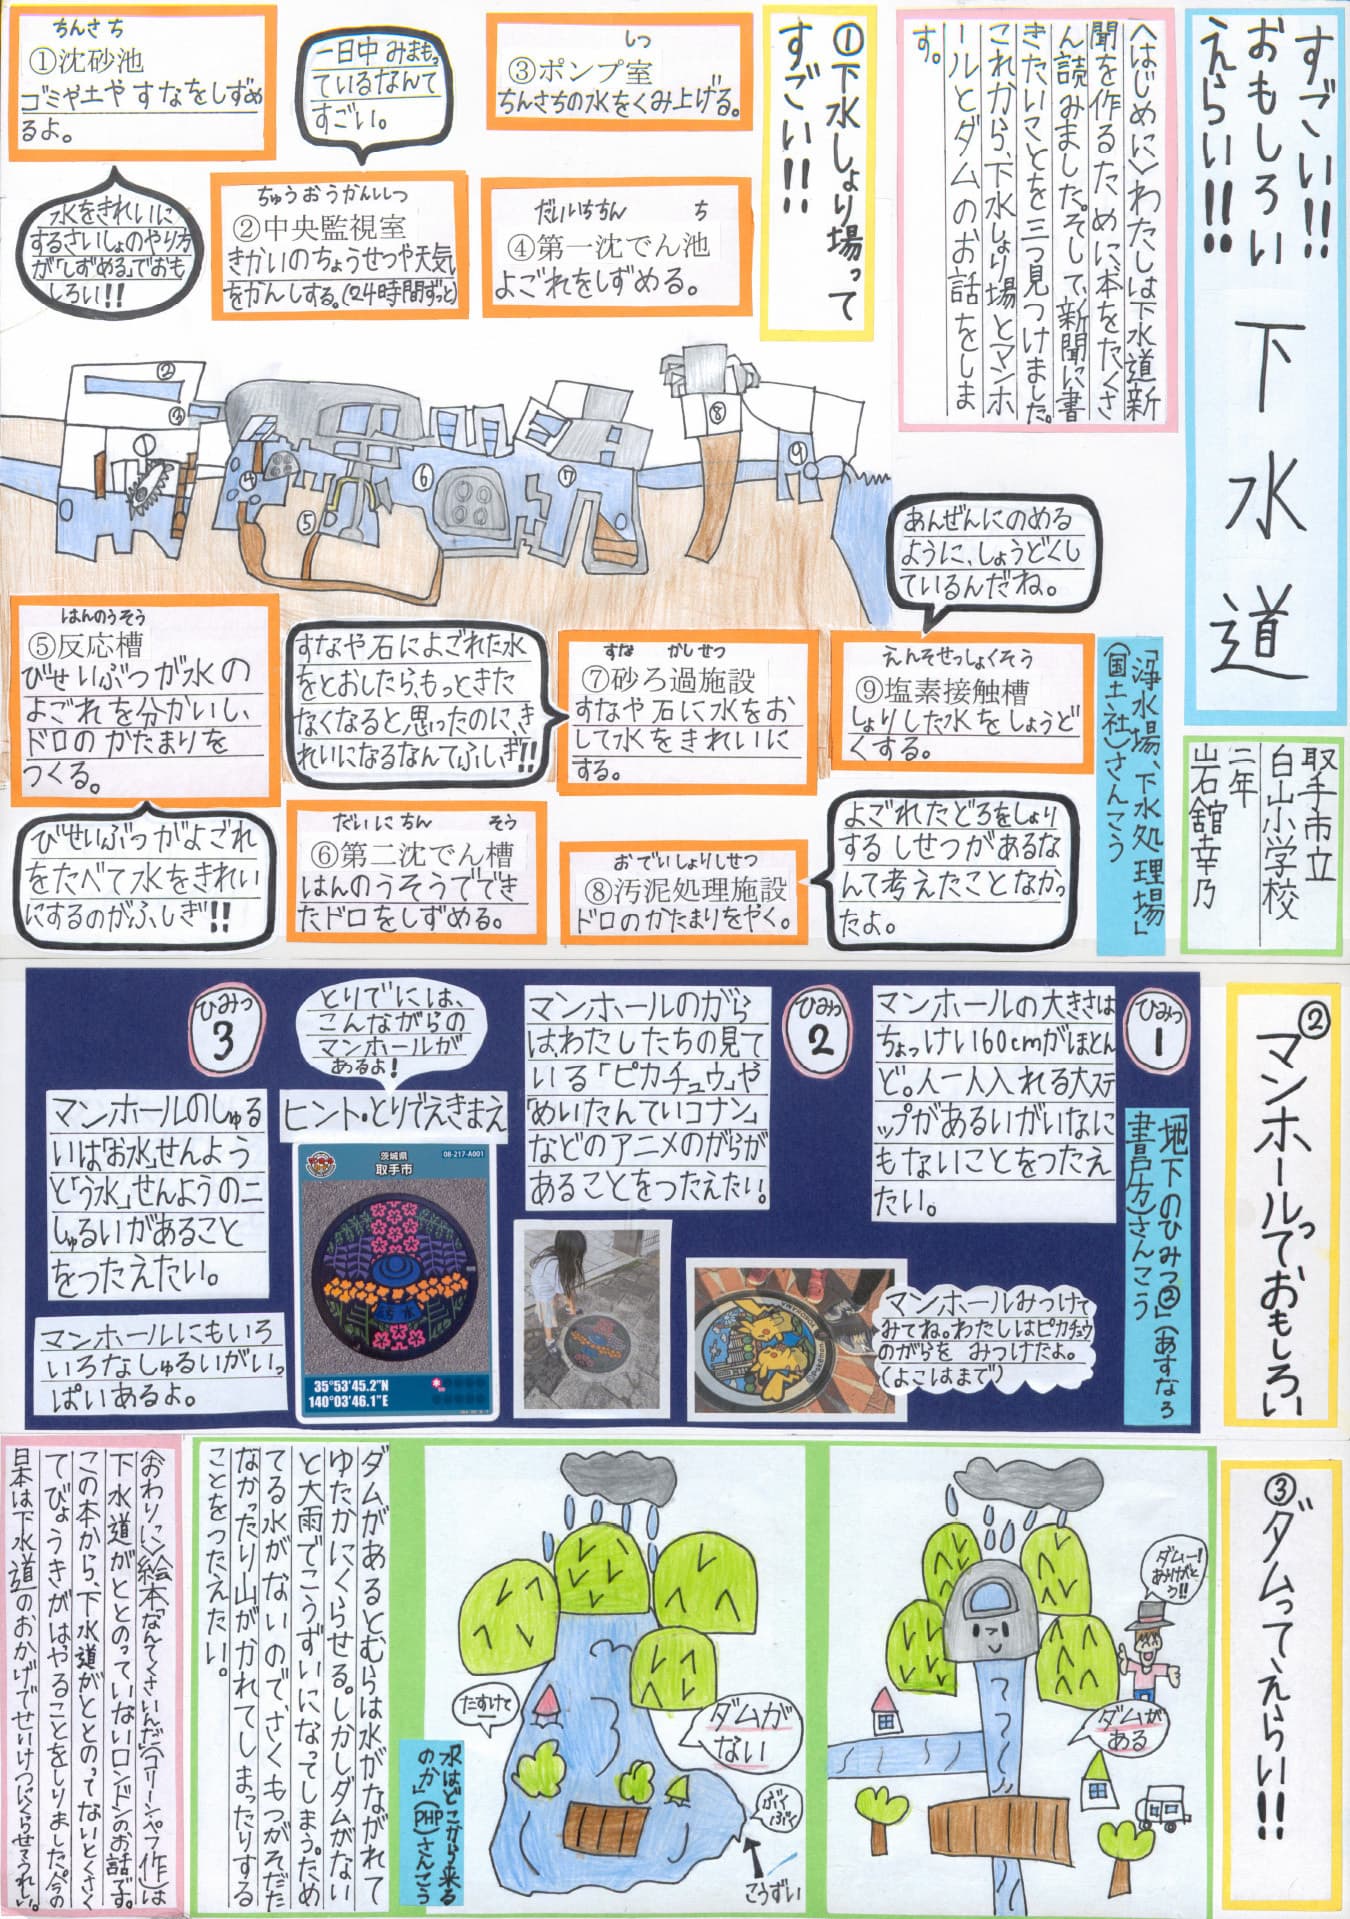 すごい!!
おもしろい
えらい!!
下水道
取手市立
白山小学校
二年
岩舘幸乃
〈はじめに〉わたしは下水道新
聞を作るために本をたくさ
ん読みました。そして、新聞に書
きたいことを三つ見つけました。
これから、下水しょり場とマンホ
ールとダムのお話をしま
す。
①下水しょり場って
すごい!!
ちんさち
①沈砂池
ゴミや土や すなをしずめ
るよ。
水をきれいに
するさいしょのやり方
が「しずめる」でおも
しろい!!
一日中 みまもっ
ているなんて
すごい。
ちゅうおうかんしつ
②中央監視室
きかいのちょうせつや天気
をかんしする。(24時間ずっと)
しつ
③ポンプ室
ちんさちの水をくみ上げる。
だいいちちん ち
④第一沈でん池
よごれをしずめる。
②
③
①
④
⑤
⑥
⑦
⑧
⑨
はんのうそう
⑤反応槽
びせいぶつが水の
よごれを分かいし、
ドロのかたまりを
つくる。
びせいぶつがよごれ
をたべて水をきれい
にするのがふしぎ!!
だいにちん そう
⑥第二沈でん槽
はんのうそうででき
たドロをしずめる。
すなや石によごれた水
をとおしたら、もっときた
なくなると思ったのに、き
れいになるなんてふしぎ!!
すな かしせつ
⑦砂ろ過施設
すなや石に水をお
して水をきれいに
する。
おでいしょりしせつ
⑧汚泥処理施設
ドロのかたまりをやく。
よごれたどろをしょり
する しせつがあるな
んて考えたことなかっ
たよ。
えんそせっしょくそう
⑨塩素接触槽
しょりした水をしょうど
くする。
あんぜんにのめる
ように、しょうどくし
ているんだね。
「浄水場、下水処理場」
(国土社)さんこう
②マンホールっておもしろい
ひみつ
1
マンホールの大きさは
ちょっけい60cmがほとん
ど。人一人入れる大ステ
ップがあるいがいなに
もないことをつたえ
たい。
「地下のひみつ②」(あすなろ
書房)さんこう
ひみつ
2
マンホールのがら
は、わたしたちの見て
いる「ピカチュウ」や
「めいたんていコナン」
などのアニメのがらが
あることをつたえたい。
マンホールみつけて
みてね。わたしはピカチュウ
のがらを みつけたよ。
(よこはまで)
ひみつ
3
マンホールのしゅる
いは「お水」せんよう
と「う水」せんようの二
しゅるいがあること
をつたえたい。
マンホールにもいろ
いろなしゅるいがいっ
ぱいあるよ。
とりでには、
こんながらの
マンホールが
あるよ!
ヒント・とりでえきまえ
茨城県
取手市
08-217-A001
汚水
35°53'45.2"N
140°03'46.1"E
③ダムってえらい!!
ダムー!
ありがと
う!!
ダムが
ある
ダムが
ない
たすけて
ぶく
ぶく
こうずい
「水はどこから来る
のか」(PHP)さんこう
ダムがあるとむらは水がながれて
ゆたかにくらせる。しかしダムがない
と大雨でこうずいになってしまう。ため
てる水がないので、さくもつがそだた
なかったり山がかれてしまったりする
ことをつたえたい。
〈おわりに〉絵本「なんてくさいんだ」(コリーン・ペフ作)は
下水道がととのっていないロンドンのお話です。
この本から、下水道がととのってないとくさく
てびょうきがはやることをしりました。今の
日本は下水道のおかげでせいけつにくらせてうれしい。